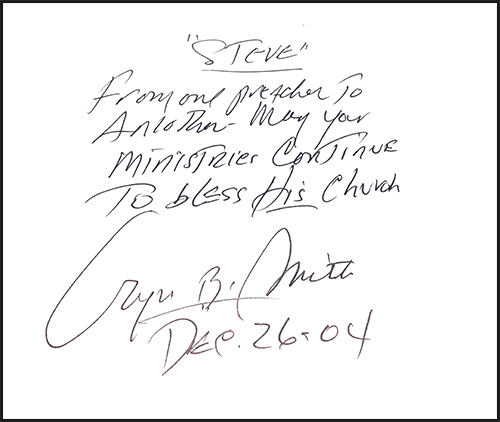 "STEVE"
From one preacher To
Another - May your
Ministries Continue
To bless His Church
B. Smith
Dec. 26-04